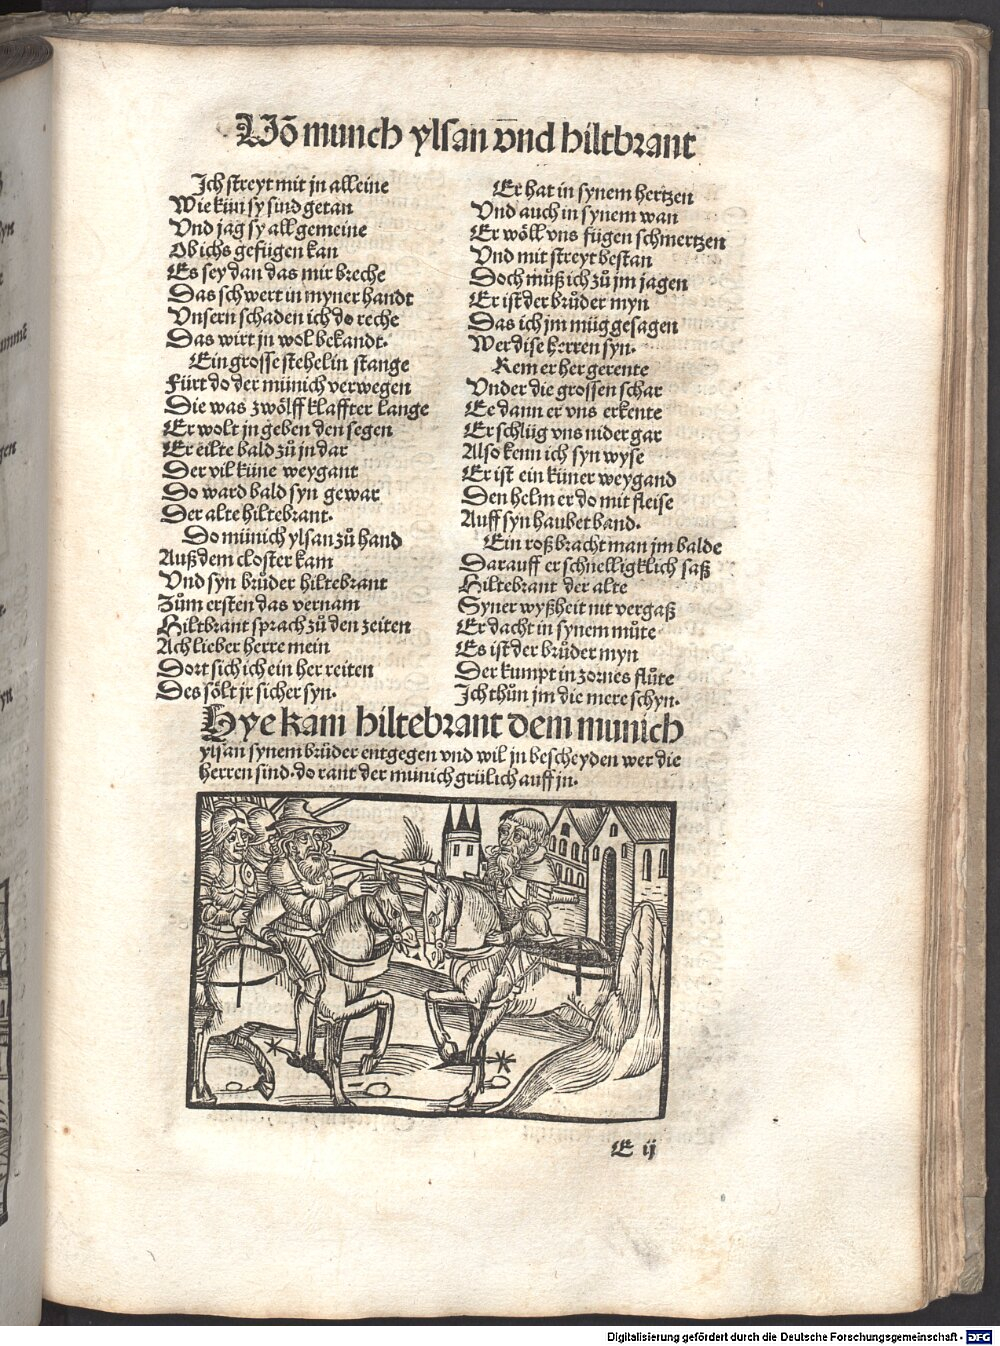 Võ munch ylsan vñd hiltbrant
Ich streyt mit jn alleine
Wie kün sy sind getan
Vnd jag sy all gemeine
Ob ichs gefügen kan
Es sey dan das mir breche
Das schwert in myner handt
Vnsern schaden ich do reche
Das wirt jn wol bekandt.
Ein grosse stehelin stange
Fürt do der münich verwegen
Die was zwölff klaffter lange
Er wolt jn geben den segen
Er eilte bald zů jn dar
Der vil küne weygant
Do ward bald syn gewar
Der alte hiltebrant.
Do münich ylsan zů hand
Auß dem closter kam
Vnd syn brüder hiltebrant
Zům ersten das vernam
Hiltbrant sprach zů den zeiten
Ach lieber herre mein
Dort sich ich ein her reiten
Des sölt jr sicher syn.
Er hat in synem hertzen
Vnd auch in synem wan
Er wöll vns fügen schmertzen
Vnd mit streyt bestan
Doch můß ich zů jm jagen
Er ist der brůder myn
Das ich jm müg gesagen
Wer dise herren syn.
Kem er her gerente
Vnder die grossen schar
Ee dann er vns erkente
Er schlüg vns nider gar
Also kenn ich syn wyse
Er ist ein küner weygand
Den helm er do mit fleise
Auff syn haubet band.
Ein roß bracht man jm balde
Darauff er schnelligklich saß
Hiltebrant der alte
Syner wyßheit nit vergaß
Er dacht in synem můte
Es ist der brůder myn
Der kumpt in zornes flůte
Ich thůn jm die mere schyn.
Hye kam hiltebrant dem munich
ylsan synem brüder entgegen vnd wil jn bescheyden wer die
herren sind. do rant der münich grülich auff jn.
E ij
Digitalisierung gefördert durch die Deutsche Forschungsgemeinschaft - DFG